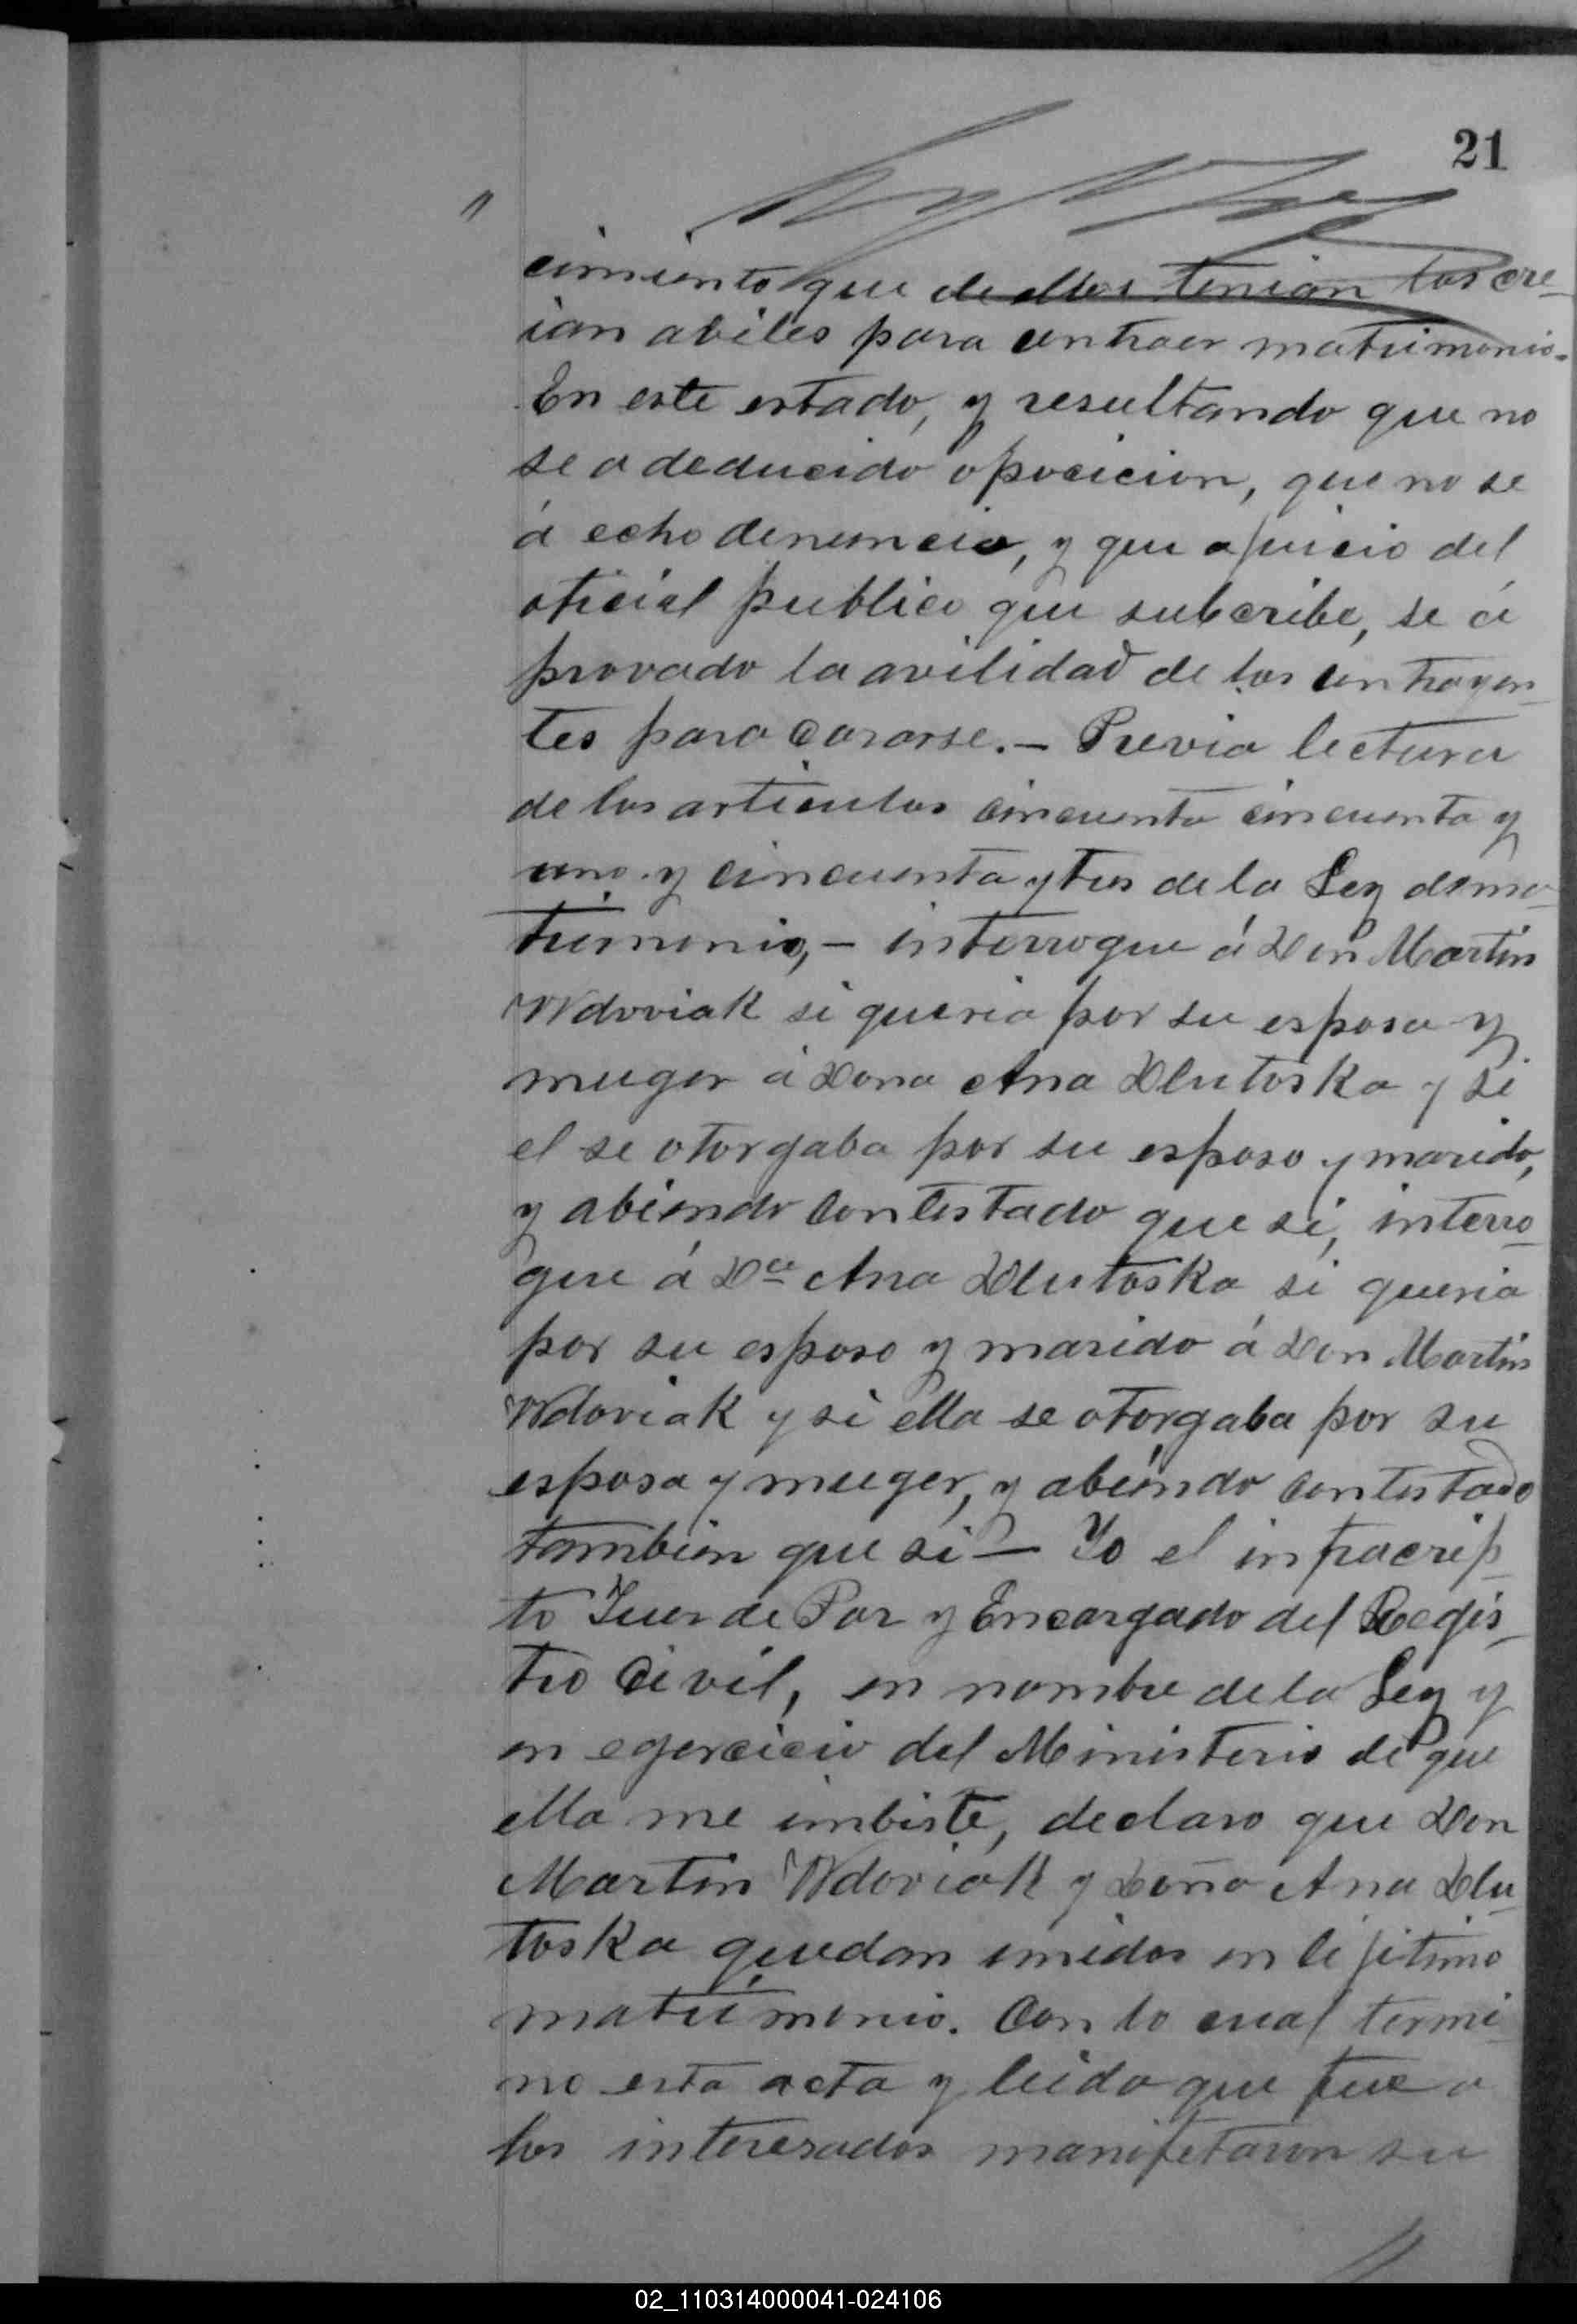 21
cimiento que de ellos tenian los cre-
ian abiles para contraer matrimonio.
En este estado, y resultando que no
se a deducido oposicion, que no se
á echo denuncia, y que a juicio del
oficial publico que subcribe, se á
provado la avilidad de los contrayen-
tes para casarse.- Previa lectura
de los articulos cincuenta cincuenta y
uno y cincuenta y tres de la Ley de ma-
trimonio,- interrogue á Don Martin
Wdoviak si queria por su esposa y
muger á Dona Ana Dlutoska y si
el se otorgaba por su esposo y marido,
y abiendo contestado que si, interro-
gue á Da Ana Dlutoska si queria
por su esposo y marido á Don Martin
Wdoviak y si ella se otorgaba por su
esposa y muger, y abiendo contestado
tambien que si - Yo el infracrip-
to Juez de Paz y Encargado del Regis-
tro Civil, en nombre de la Ley y
en egercicio del Ministerio de que
ella me imbiste, declaro que Don
Martin Wdoviak y Doña Ana Dlu-
toska quedan unidos en lejitimo
matrimonio. Con lo cual termi-
no esta acta y leida que fue a
los interesados manifetaron su
02_110314000041-024106